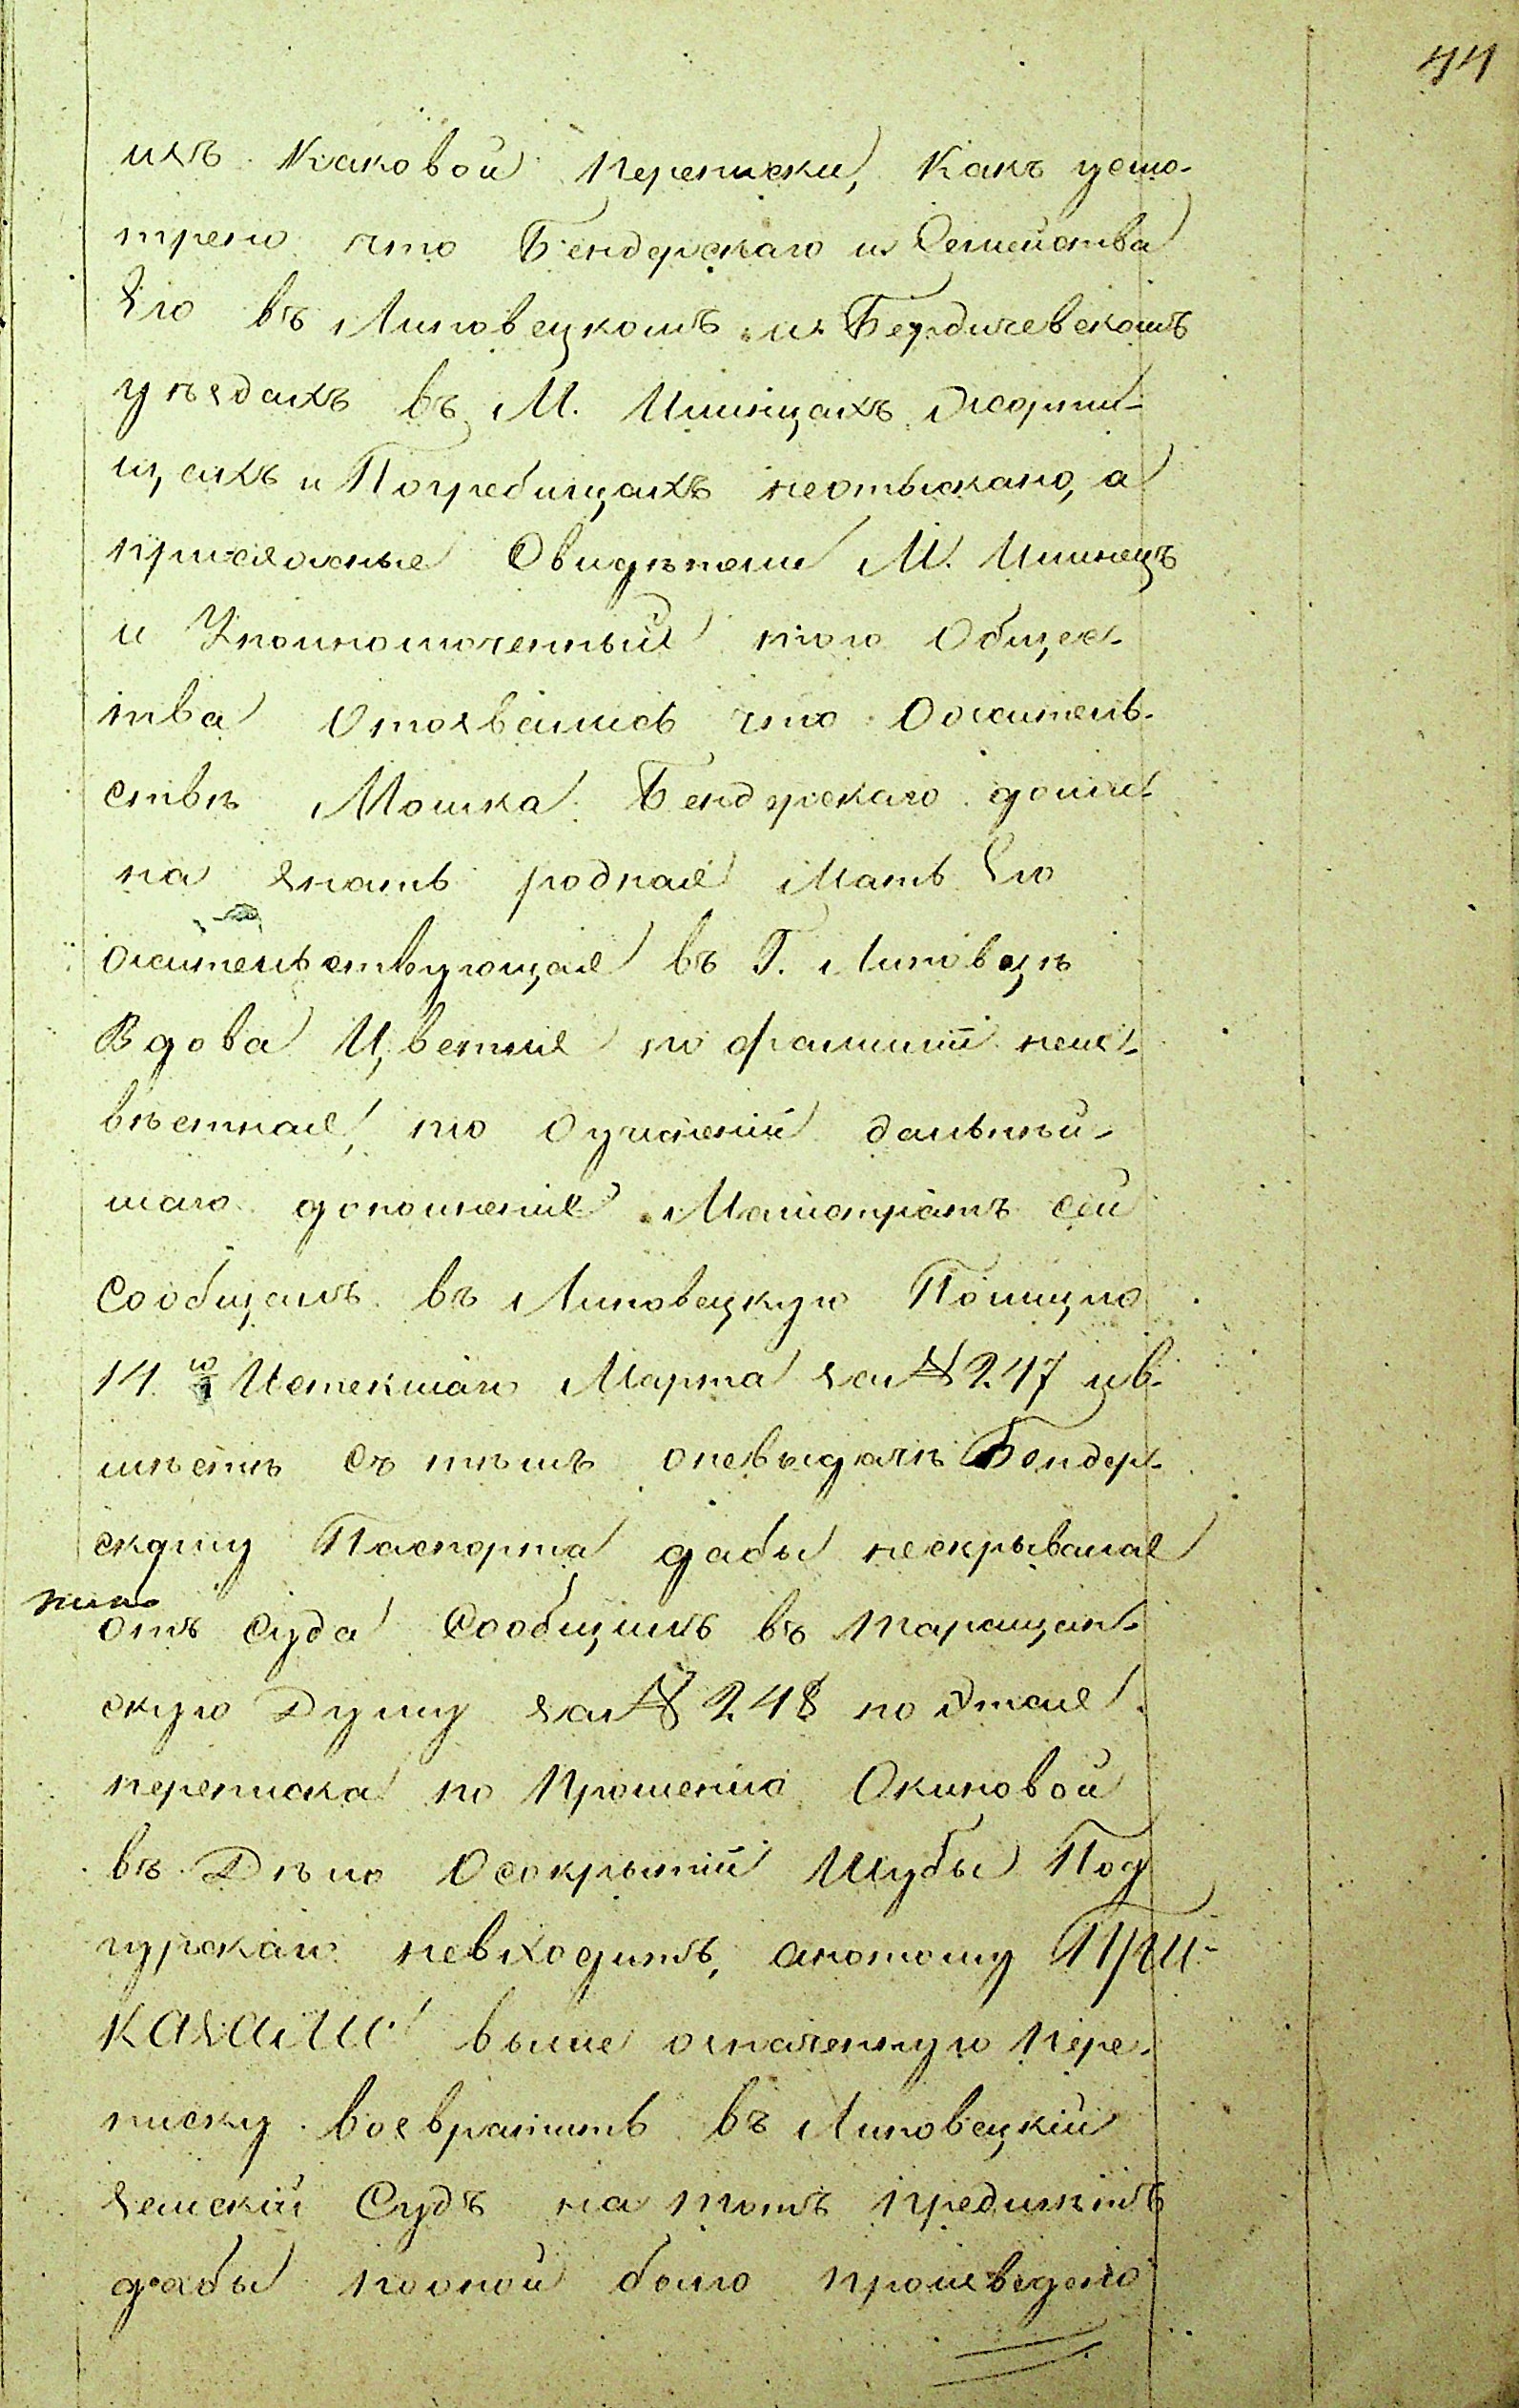 44
изъ каковой переписки, какъ усмо-
трено что Бендерскаго и Семейства
Его въ Липовецкомъ и Бердичевскомъ
уѣздахъ въ М. Илинцахъ Жорни-
щахъ и Погребищахъ неотыскано, а
присяжные Свидѣтели М. Илинецъ
и Уполномоченный того Общес-
тва Отозвались что Ожитель-
ствѣ Мошка Бендерскаго долж-
на знать родная Мать Его
жительствующая въ Г. Липовецѣ
Вдова Цветля по фамиліи неиз-
вѣстная, по Оучиненіи дальнѣй-
шаго дополненія Магистратъ сей
сообщалъ въ Липовецкую Полицію
14 го Истекшаго Марта за № 247 ув-
мѣстѣ съ тѣмъ оневыдачѣ Бендер-
скому Паспорта дабы нескрывался
отъ Суда Сообщилъ въ Таращан-
скую Думу за № 248 но Этая
переписка по Прошенію Окиповой
въ Дѣло Осокрытіи Шубы Под
гурскаго невходитъ, апотому При-
казали выше означенную Пере-
писку возвратить въ Липовецкій
земскій Судъ на тотъ предмѣтъ
дабы пооной было произведено